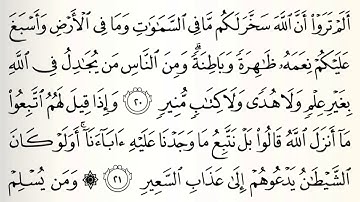 أَلَمْ تَرَوْا۟ أَنَّ ٱللَّهَ سَخَّرَ لَكُم مَّا فِى ٱلسَّمَـٰوَٰتِ وَمَا فِى ٱلْأَرْضِ وَأَسْبَغَ
عَلَيْكُمْ نِعَمَهُۥ ظَـٰهِرَةً وَبَاطِنَةً ۗ وَمِنَ ٱلنَّاسِ مَن يُجَـٰدِلُ فِى ٱللَّهِ
بِغَيْرِ عِلْمٍ وَلَا هُدًى وَلَا كِتَـٰبٍ مُّنِيرٍ ٢٠ وَإِذَا قِيلَ لَهُمُ ٱتَّبِعُوا۟
مَآ أَنزَلَ ٱللَّهُ قَالُوا۟ بَلْ نَتَّبِعُ مَا وَجَدْنَا عَلَيْهِ ءَابَآءَنَآ ۚ أَوَلَوْ كَانَ
ٱلشَّيْطَـٰنُ يَدْعُوهُمْ إِلَىٰ عَذَابِ ٱلسَّعِيرِ ٢١ ۞ وَمَن يُسْلِمْ